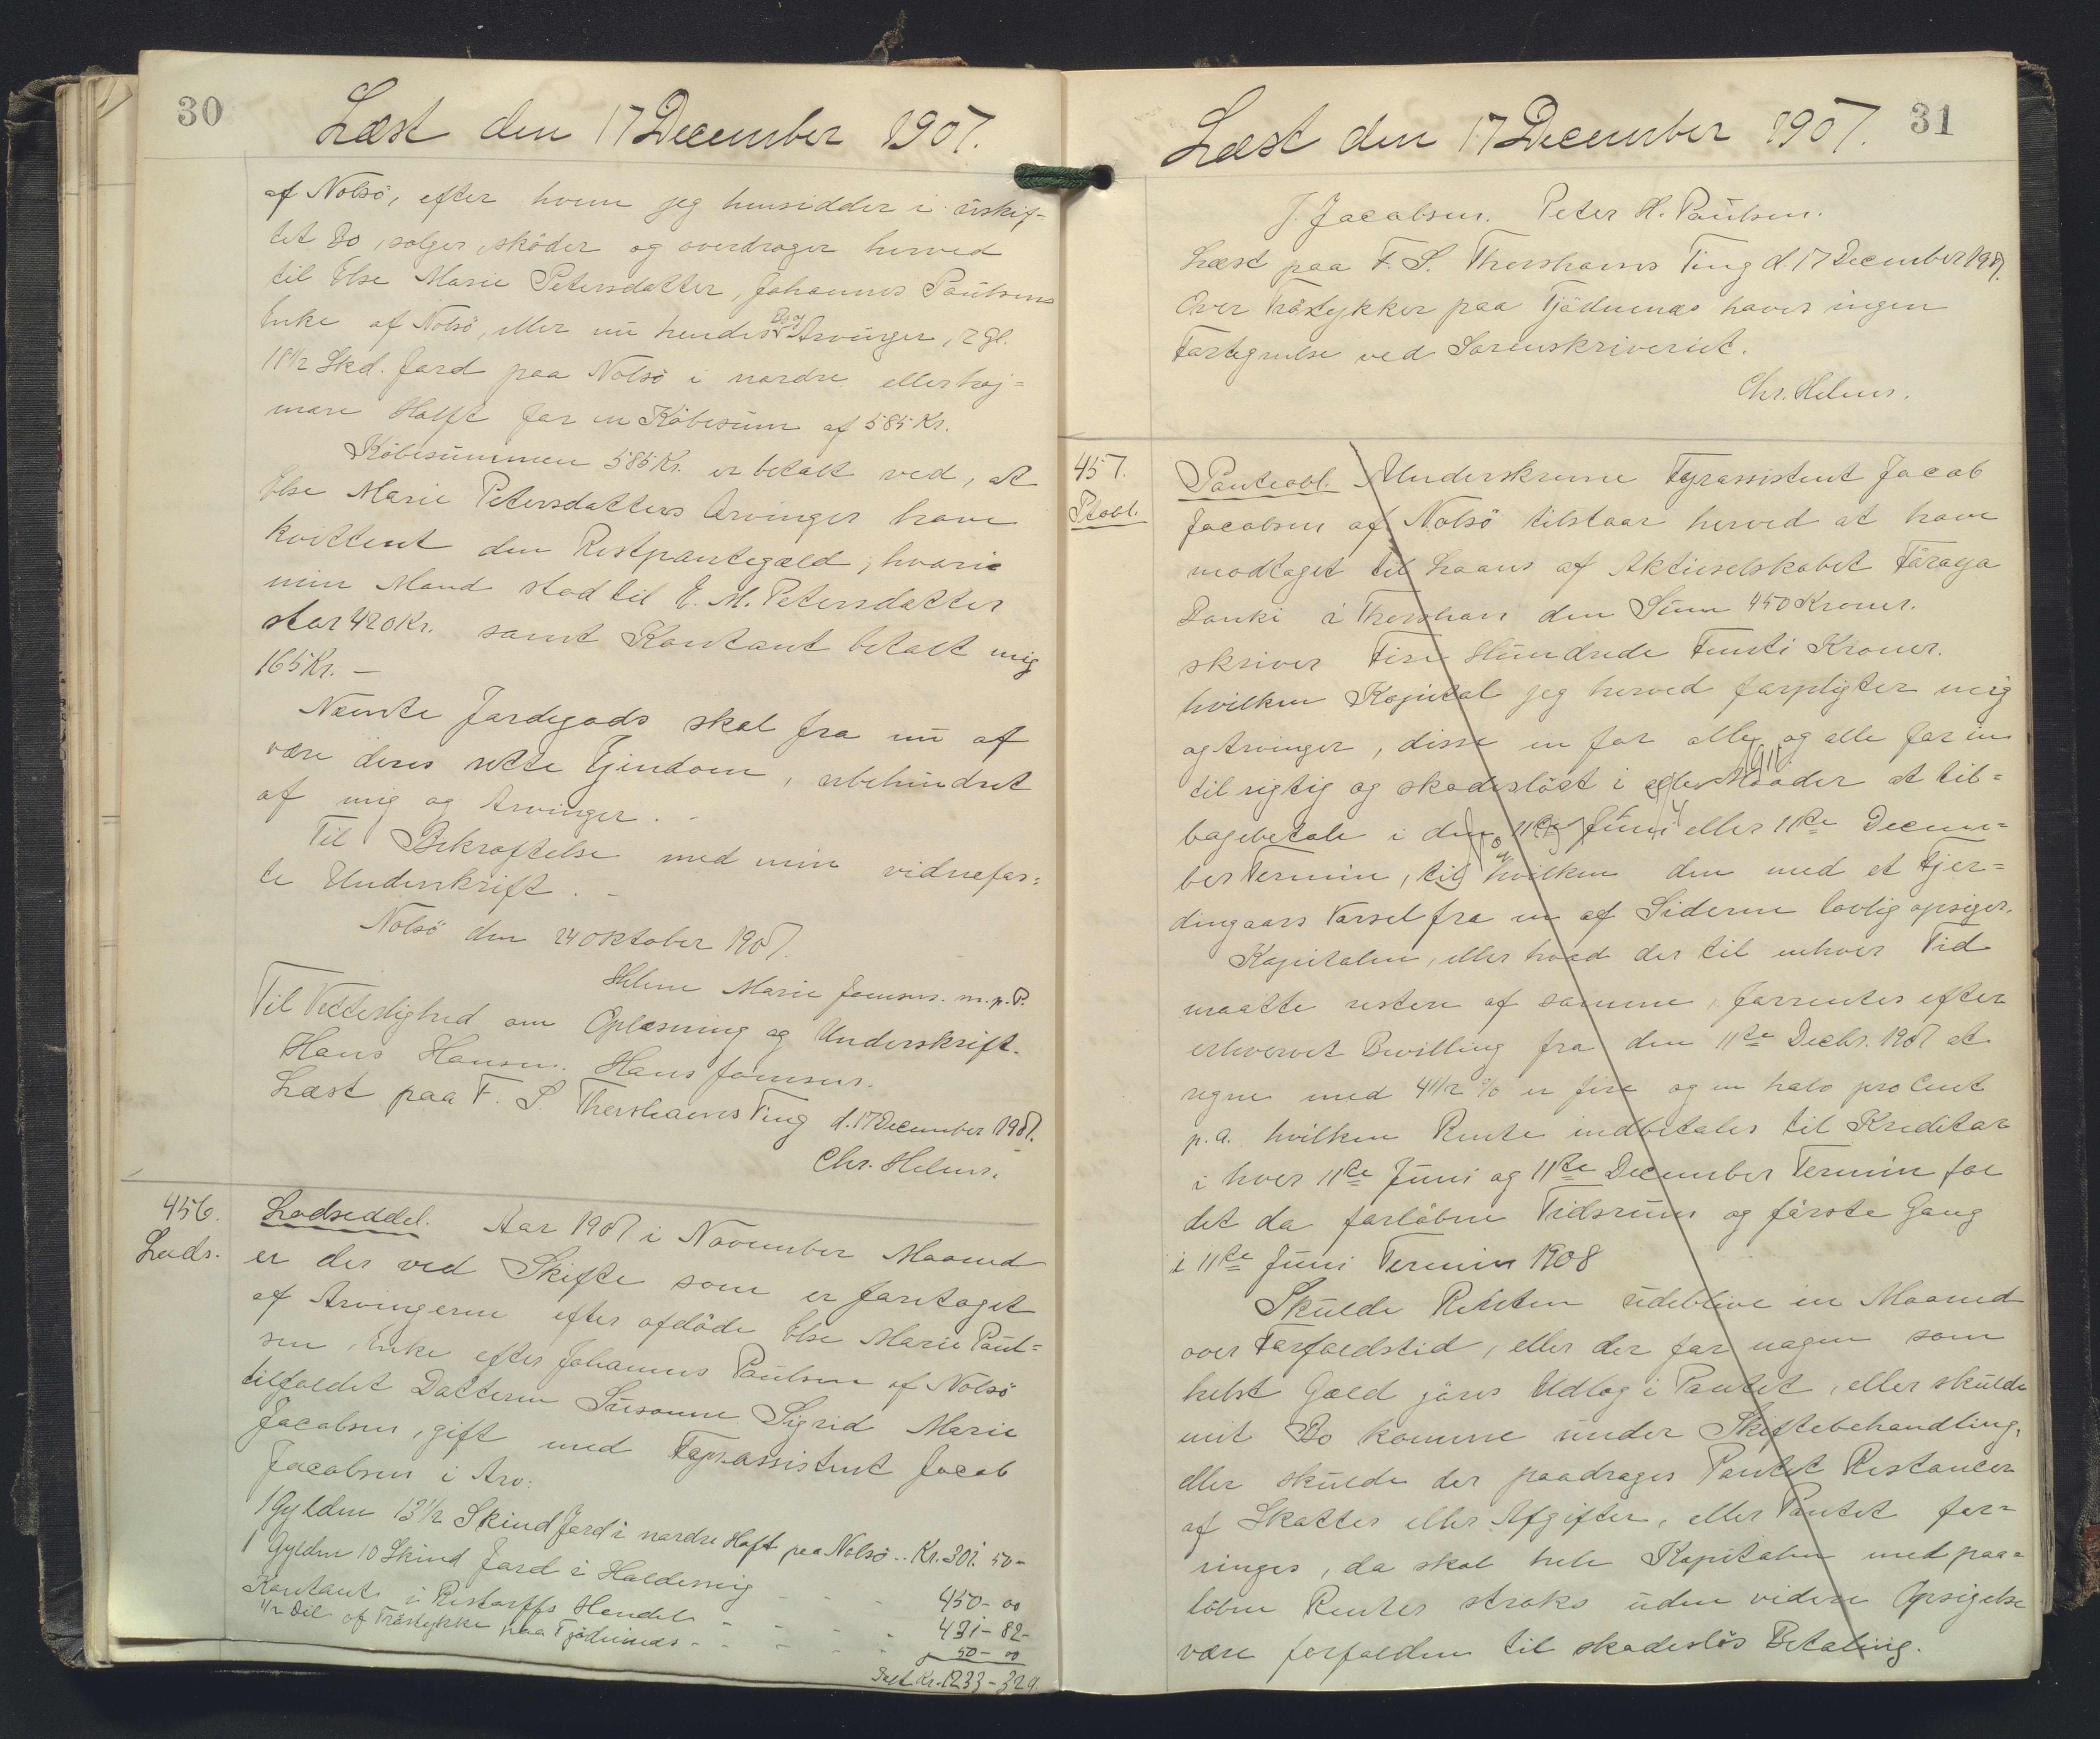 30
Læst den 17 December 1907.
af Nolsö, efter hvem jeg hensidder i uskif-
tet Bo, sælger, sköder og overdrager herved
til Else Marie Petersdatter, Johannes Paulsens
Enke af Nolsö, eller nu hendes Bo og Arvinger, 2 Gl.
18 1/2 Skd. Jord paa Nolsö i nordre eller høj=
mare Halft for en Köbesum af 585 Kr.
Köbesummen 585 Kr. er betalt ved, at
Else Marie Petersdatters Arvinger have
kvitteret den Restpantegæld, hvori
min Mand stod til E. M. Petersdatter
stor 420 Kr. samt Kontant betalt mig
165 Kr. —
Nævnte Jordegods skal fra nu af
være deres rette Ejendom, ubehindret
af mig og Arvinger. -
Til Bekræftelse med min vidnefas=
te Underskrift. -
Nolsö den 24 Oktober 1907.
Helene Marie Joensen. m. p. P.
Til Vitterlighed om Oplæsning og Underskrift.
Hans Hansen. Hans Joensen.
Læst paa F. S. Thorshavns Ting d. 17 December 1907.
Chr. Helms.
456.
Lods.
Lodseddel. Aar 1907 i November Maaned
er der ved Skifte som er foretaget
af Arvingerne efter afdöde Else Marie Paul=
sen, Enke efter Johannes Paulsen af Nolsö
tilfaldet Datteren Susanne Sigrid Marie
Jacobsen, gift med Fyrassistent Jacob
Jacobsen i Arv:
1 Gylden 13 1/2 Skind Jord i nordre Haft paa Nolsö .. Kr. 301. 50 -
1 Gylden 10 Skind Jord i Haldersvig - - - 450 - 00
Kontant i Restorffs Handel - - - - 431 - 82 -
1/2 Del af Træstykke paa Tjödnenæs - - - - 50 - 00
Ialt Kr. 1233 - 32 Ø.
31
Læst den 17 December 1907.
J. Jacobsen. Peter H. Paulsen.
Læst paa F. S. Thorshavns Ting d. 17 December 1907.
Over Træstykker paa Tjödnenæs haves ingen
Fortegnelse ved Sorenskriveriet.
Chr. Helms.
457.
Ptobl.
Panteobl. Underskrevne Fyrassistent Jacob
Jacobsen af Nolsö tilstaar herved at have
modtaget til Laans af Aktieselskabet Föroya
Banki i Thorshavn den Sum 450 Kroner.
skriver Fire Hundrede Femti Kroner.
hvilken Kapital jeg herved forpligter mig
og Arvinger, disse en for alle og alle for en
til rigtig og skadeslöst i alle Maader at til=
bagebetale i den 11te Juni eller 11te Decem=
ber Termin, til hvilken den med et Fjer=
dingaars Varsel fra en af Siderne lovlig opsiges.
Kapitalen, eller hvad der til enhver Tid
maatte restere af samme, forrentes efter
erhvervet Bevilling fra den 11te Decbr. 1907 at
regne med 4 1/2 % er fire og en halv pro Cent
p. a. hvilken Rente indbetales til Kreditor
i hver 11te Juni og 11te December Termin for
det da forlöbne Tidsrum og förste Gang
i 11te Juni Termin 1908
Skulde Renten udeblive en Maaned
over Forfaldstid, eller der for nogen som
helst Gæld göres Udlæg i Pantet, eller skulde
mit Bo komme under Skiftebehandling,
eller skulde der paadrages Pantet Restancer
af Skatter eller Afgifter, eller Pantet for=
ringes, da skal hele Kapitalen med paa=
löbne Renter straks uden videre Opsigelse
være forfalden til skadeslös Betaling.